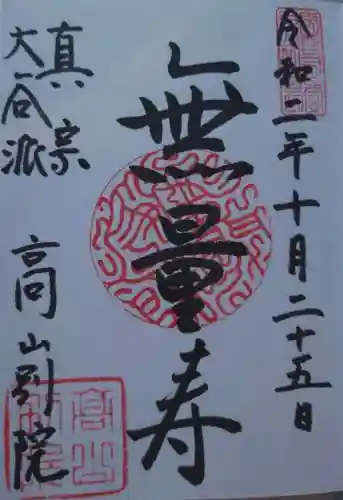 令和二年十月二十五日
無量寿
真宗
大谷派
高山別院